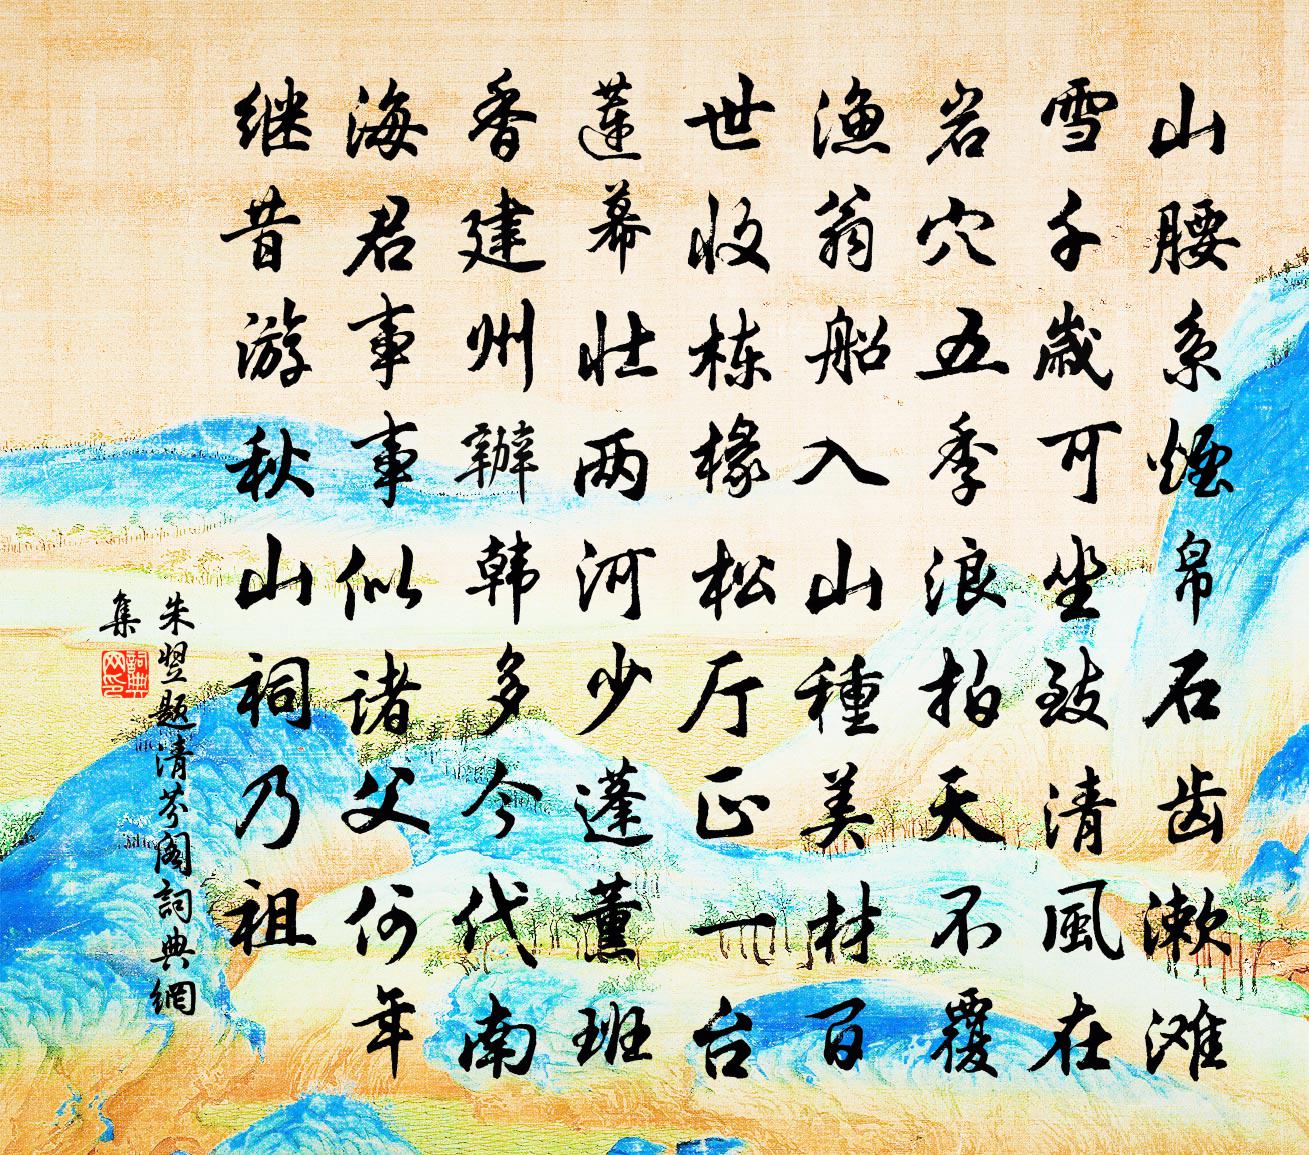 山腰系烟帛石齿漱滩
雪千歲可坐致清風在
岩穴五季浪拍天不覆
漁翁船入山種美材百
世收栋椽松厅正一台
蓮幕壮两河少蓬薰班
香建州辦韩多今代南
海君事事似诸父何年
继昔游秋山祠乃祖
朱翌题清芬阁詞典網
集
詞典